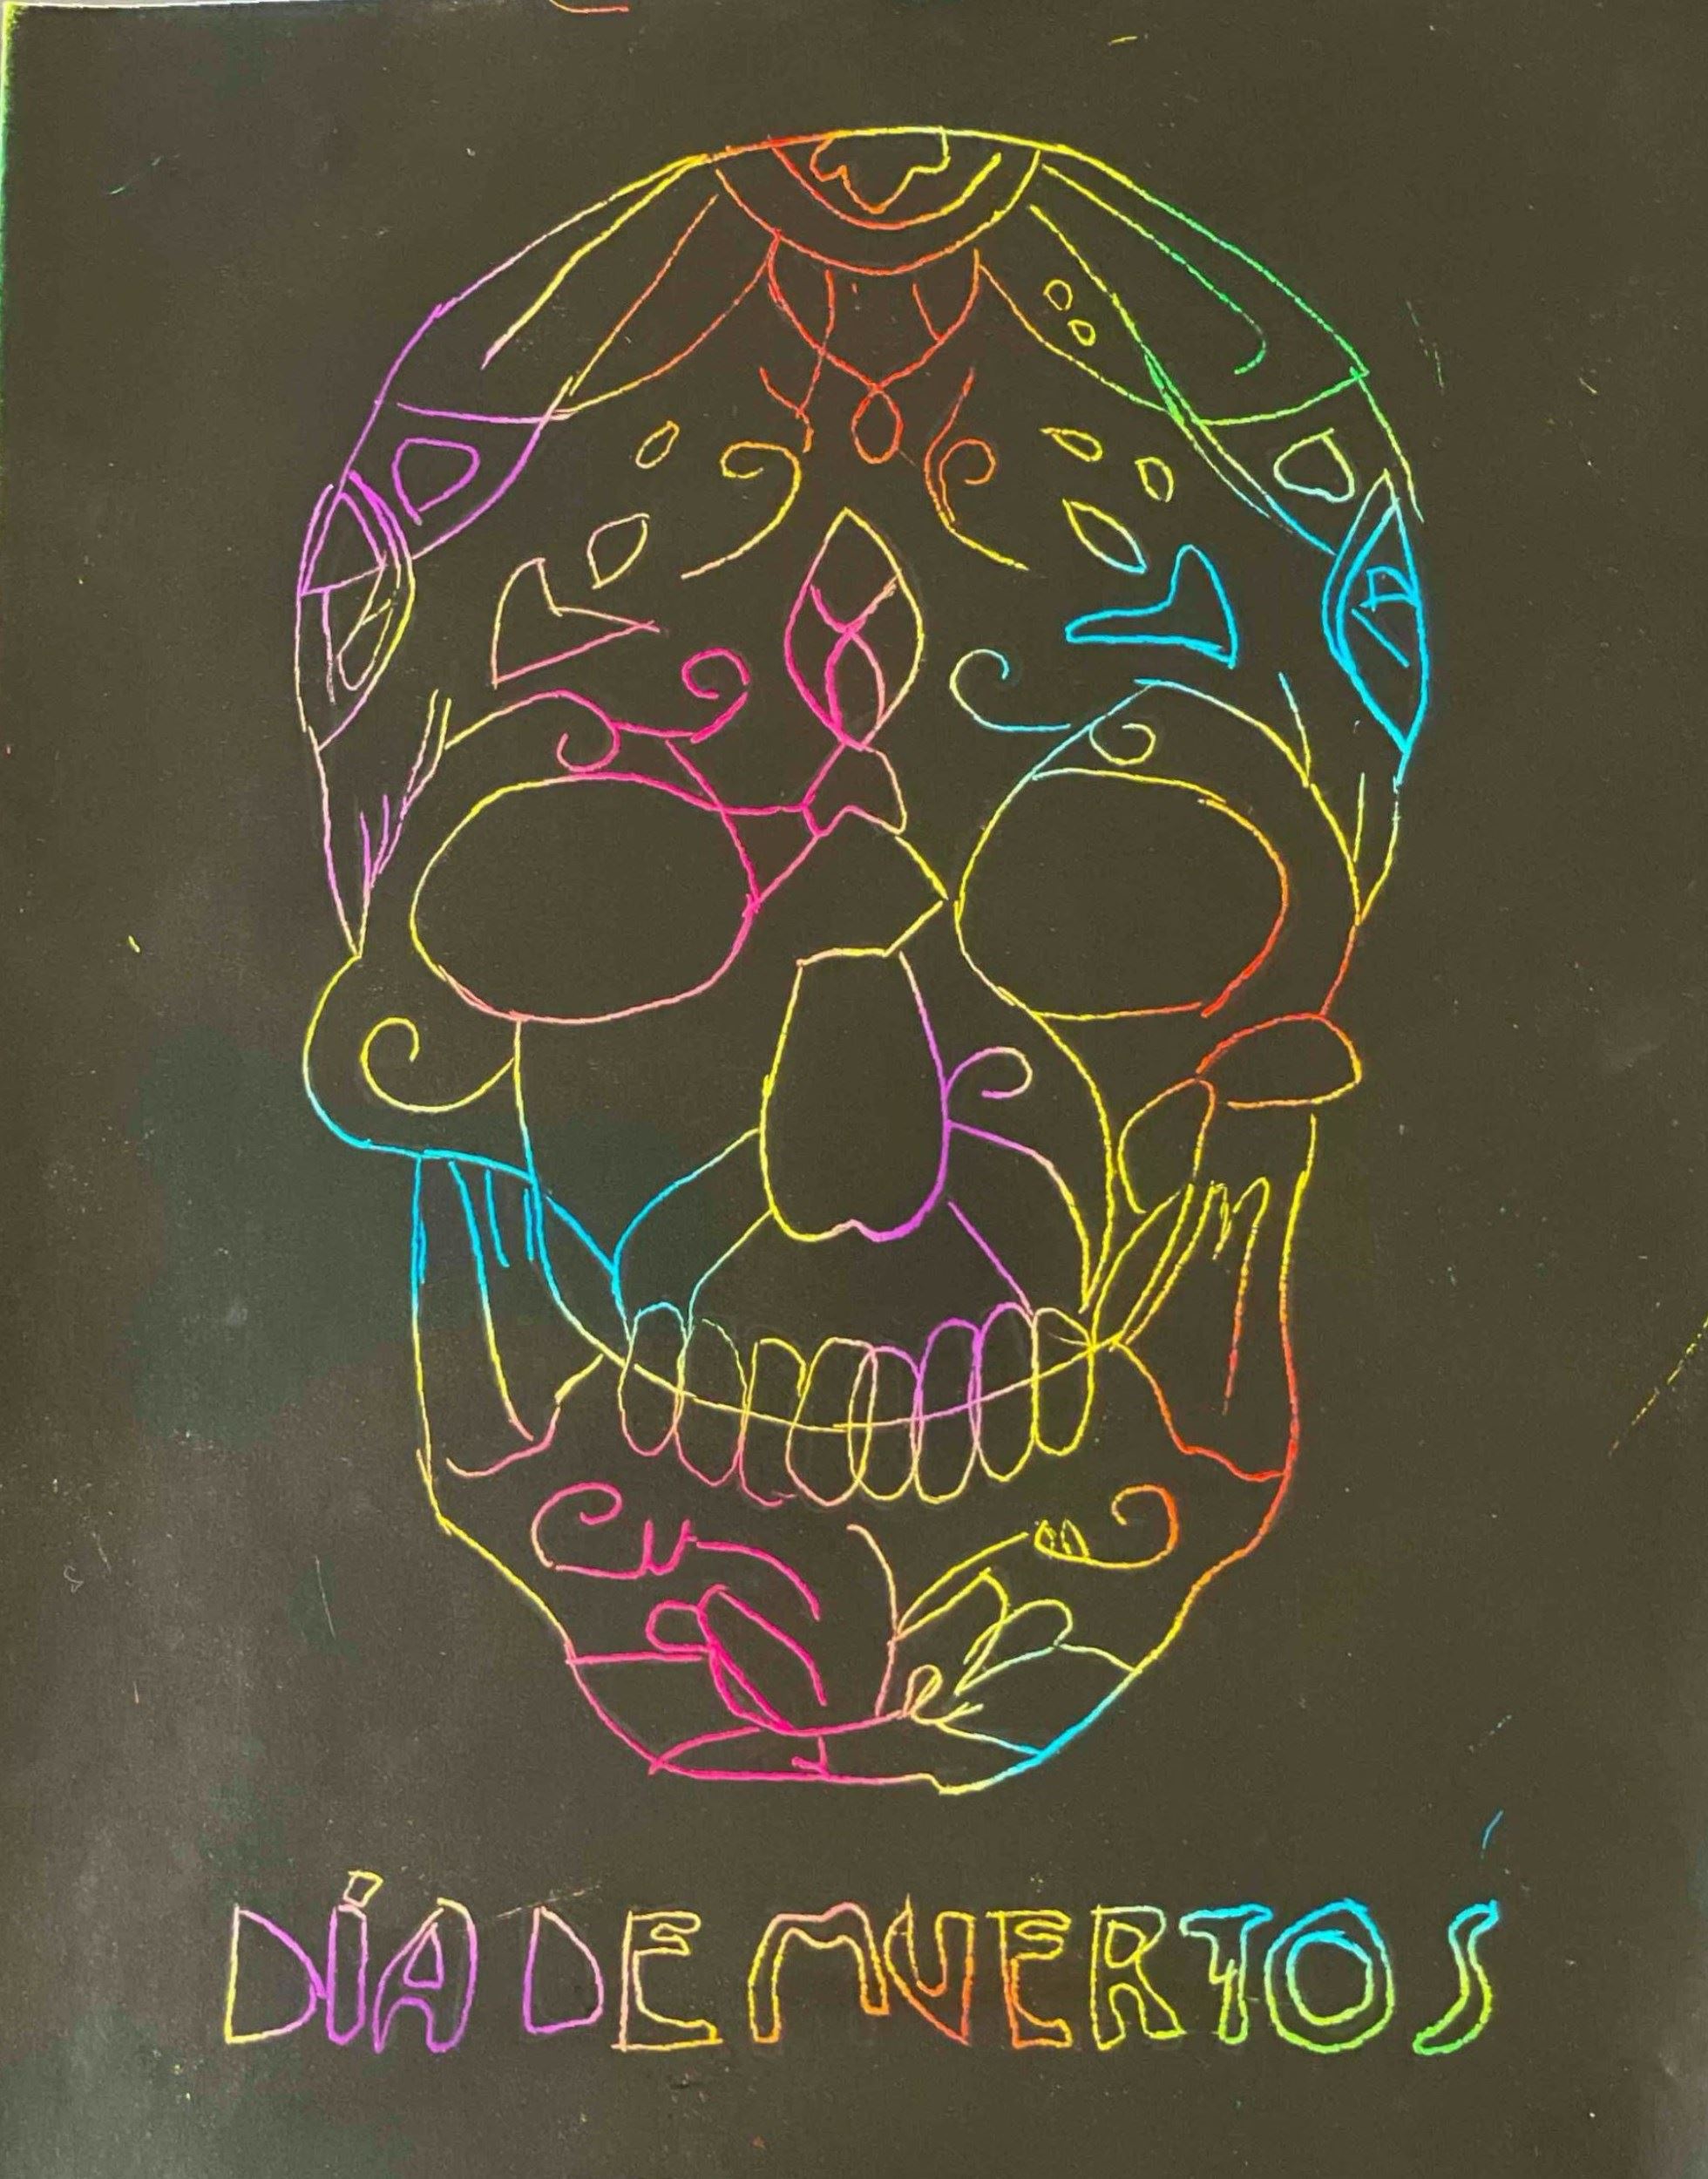 DÍA DE MUERTOS